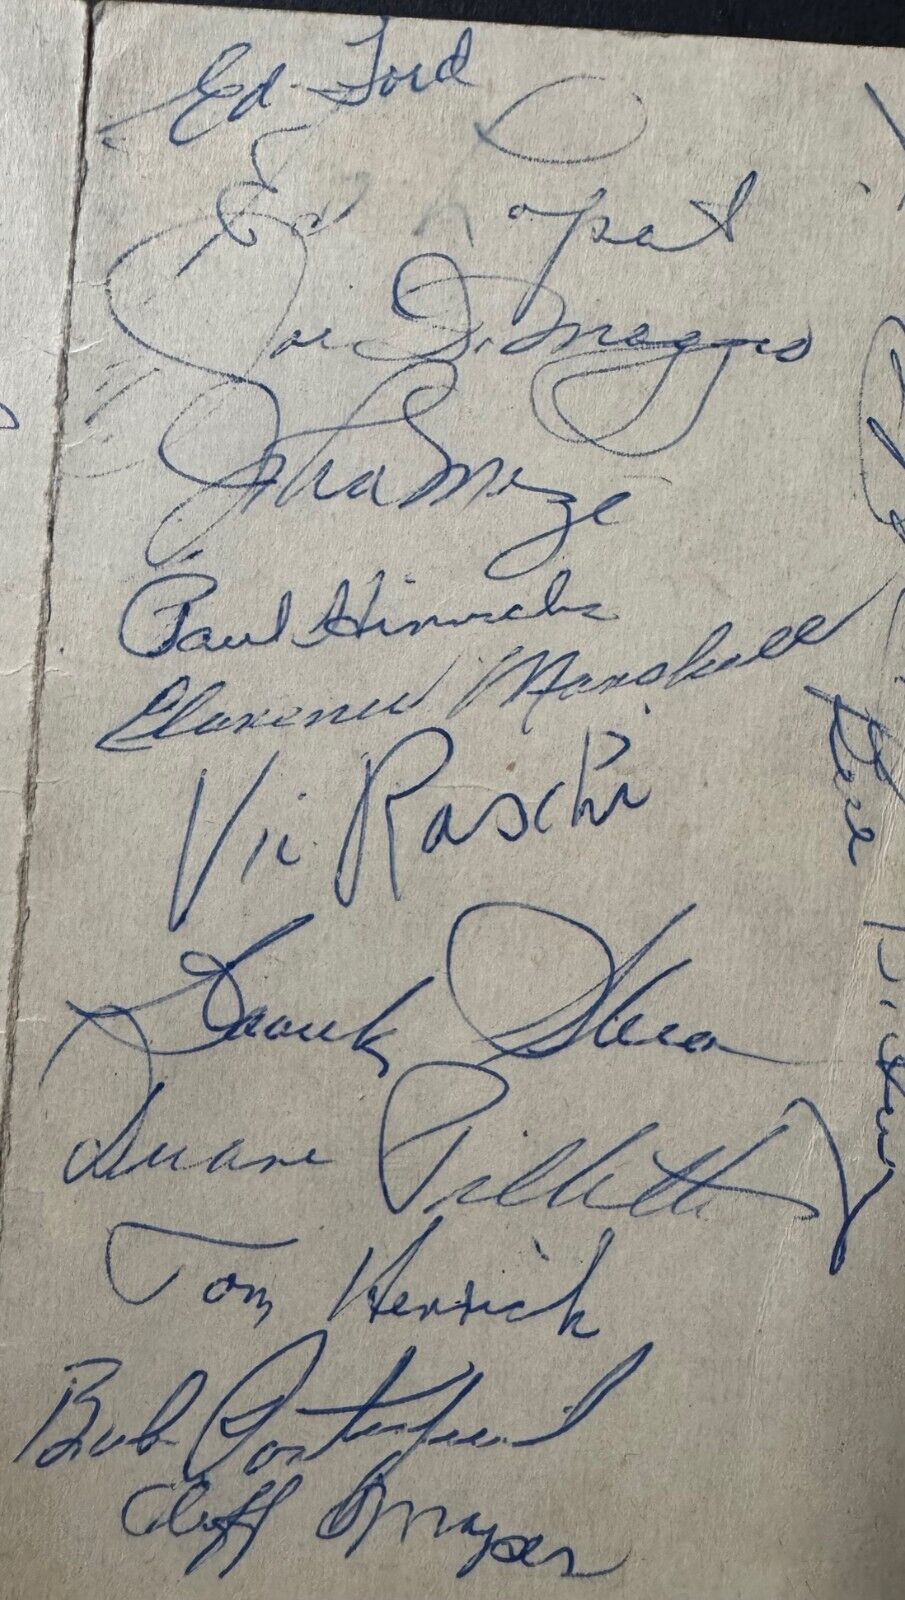 Ed. Ford
Ed Lopat
Joe DiMaggio
John Mize
Paul Hinrichs
Clarence Marshall
Vic Raschi
Frank Shea
Duane Pillette
Tom Henrich
Bob Porterfield
Cliff Mapes
Bill Dickey